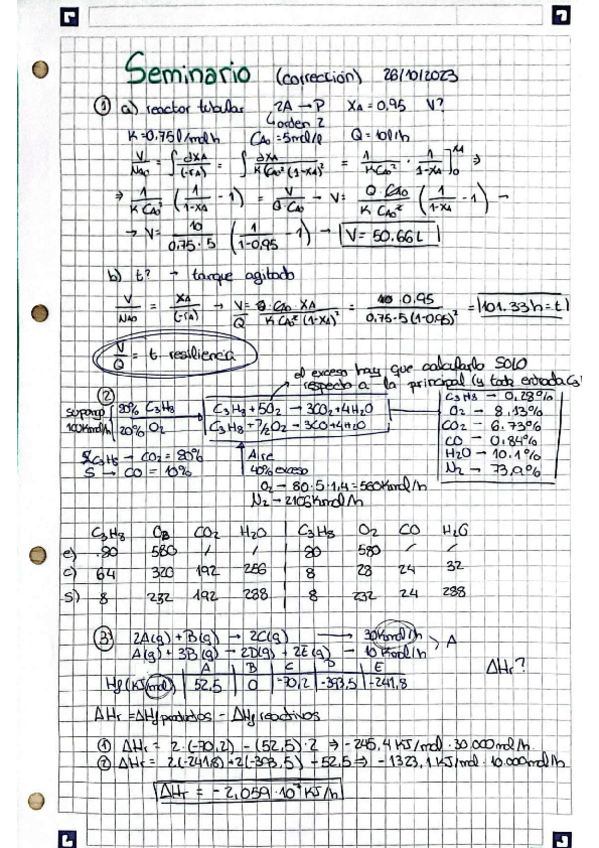 Seminario (corrección) 26/10/2023
① a) reactor tubular 2A → P XA = 0,95 V?
↳ orden 2
K = 0,75 l/mol h CA0 = 5mol/l Q = 10l/h
V/NA0 = ∫ dXA/(-rA) = ∫ dXA/K CA0² (1-XA)² = 1/K CA0² · 1/1-XA ]₀ ⇒
⇒ 1/K CA0² (1/1-XA - 1) = V/Q CA0 → V = Q·CA0/K CA0² (1/1-XA - 1) →
→ V = 10/0,75·5 (1/1-0,95 - 1) → V = 50.66 L
b) t? → tanque agitado
V/NA0 = XA/(-rA) → V/Q = CA0 XA/K CA0² (1-XA)² = 0.95/0,75·5(1-0,95)² = 101.33h = t
V/Q = t resiliencia
el exceso hay que calcularlo SOLO
respecto a la principal (y toda entrada C3
②
supongo 80% C3H8
100Kmol/h 20% O2
C3H8 + 5O2 → 3CO2 + 4H2O
C3H8 + 7/2 O2 → 3CO + 4H2O
C3H8 → 0,28%
O2 → 8.13%
CO2 → 6.73%
CO → 0.84%
H2O → 10.1%
N2 → 73,9%
C3H8 → CO2 = 80%
S → CO = 10%
Aire
40% exceso
O2 → 80·5·1,4 = 560Kmol/h
N2 → 2106Kmol/h
C3H8 O2 CO2 H2O C3H8 O2 CO H2O
e) 80 580 / / 80 580 / /
c) 64 320 192 256 8 28 24 32
s) 8 232 192 288 8 232 24 288
③ 2A(g) + B(g) → 2C(g) → 30Kmol/h
A(g) + 3B(g) → 2D(g) + 2E(g) → 10 Kmol/h > A
ΔHr?
A B C D E
Hf (KJ/mol) 52,5 0 -70,2 -393,5 -241,8
ΔHr = ΔHf productos - ΔHf reactivos
① ΔHr = 2·(-70,2) - (52,5)·2 ⇒ -245,4 KJ/mol · 30.000mol/h
② ΔHr = 2(-241,8) + 2(-393,5) - 52,5 ⇒ -1323,1 KJ/mol · 10.000mol/h
ΔHr = -2,059·10⁷ KJ/h